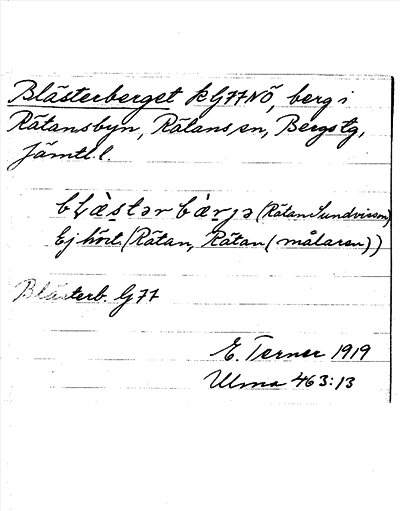 Blästerberget k G77NÖ, berg i
Rätansbyn, Rätans sn, Bergs tg,
Jämtl. l.
bḷä̀stər bä̀rjə (Rätan Sundvisson)
Ej hört. (Rätan, Rätan (målaren))
Blästerb. G 77
E. Terner 1919
Ulma 463:13